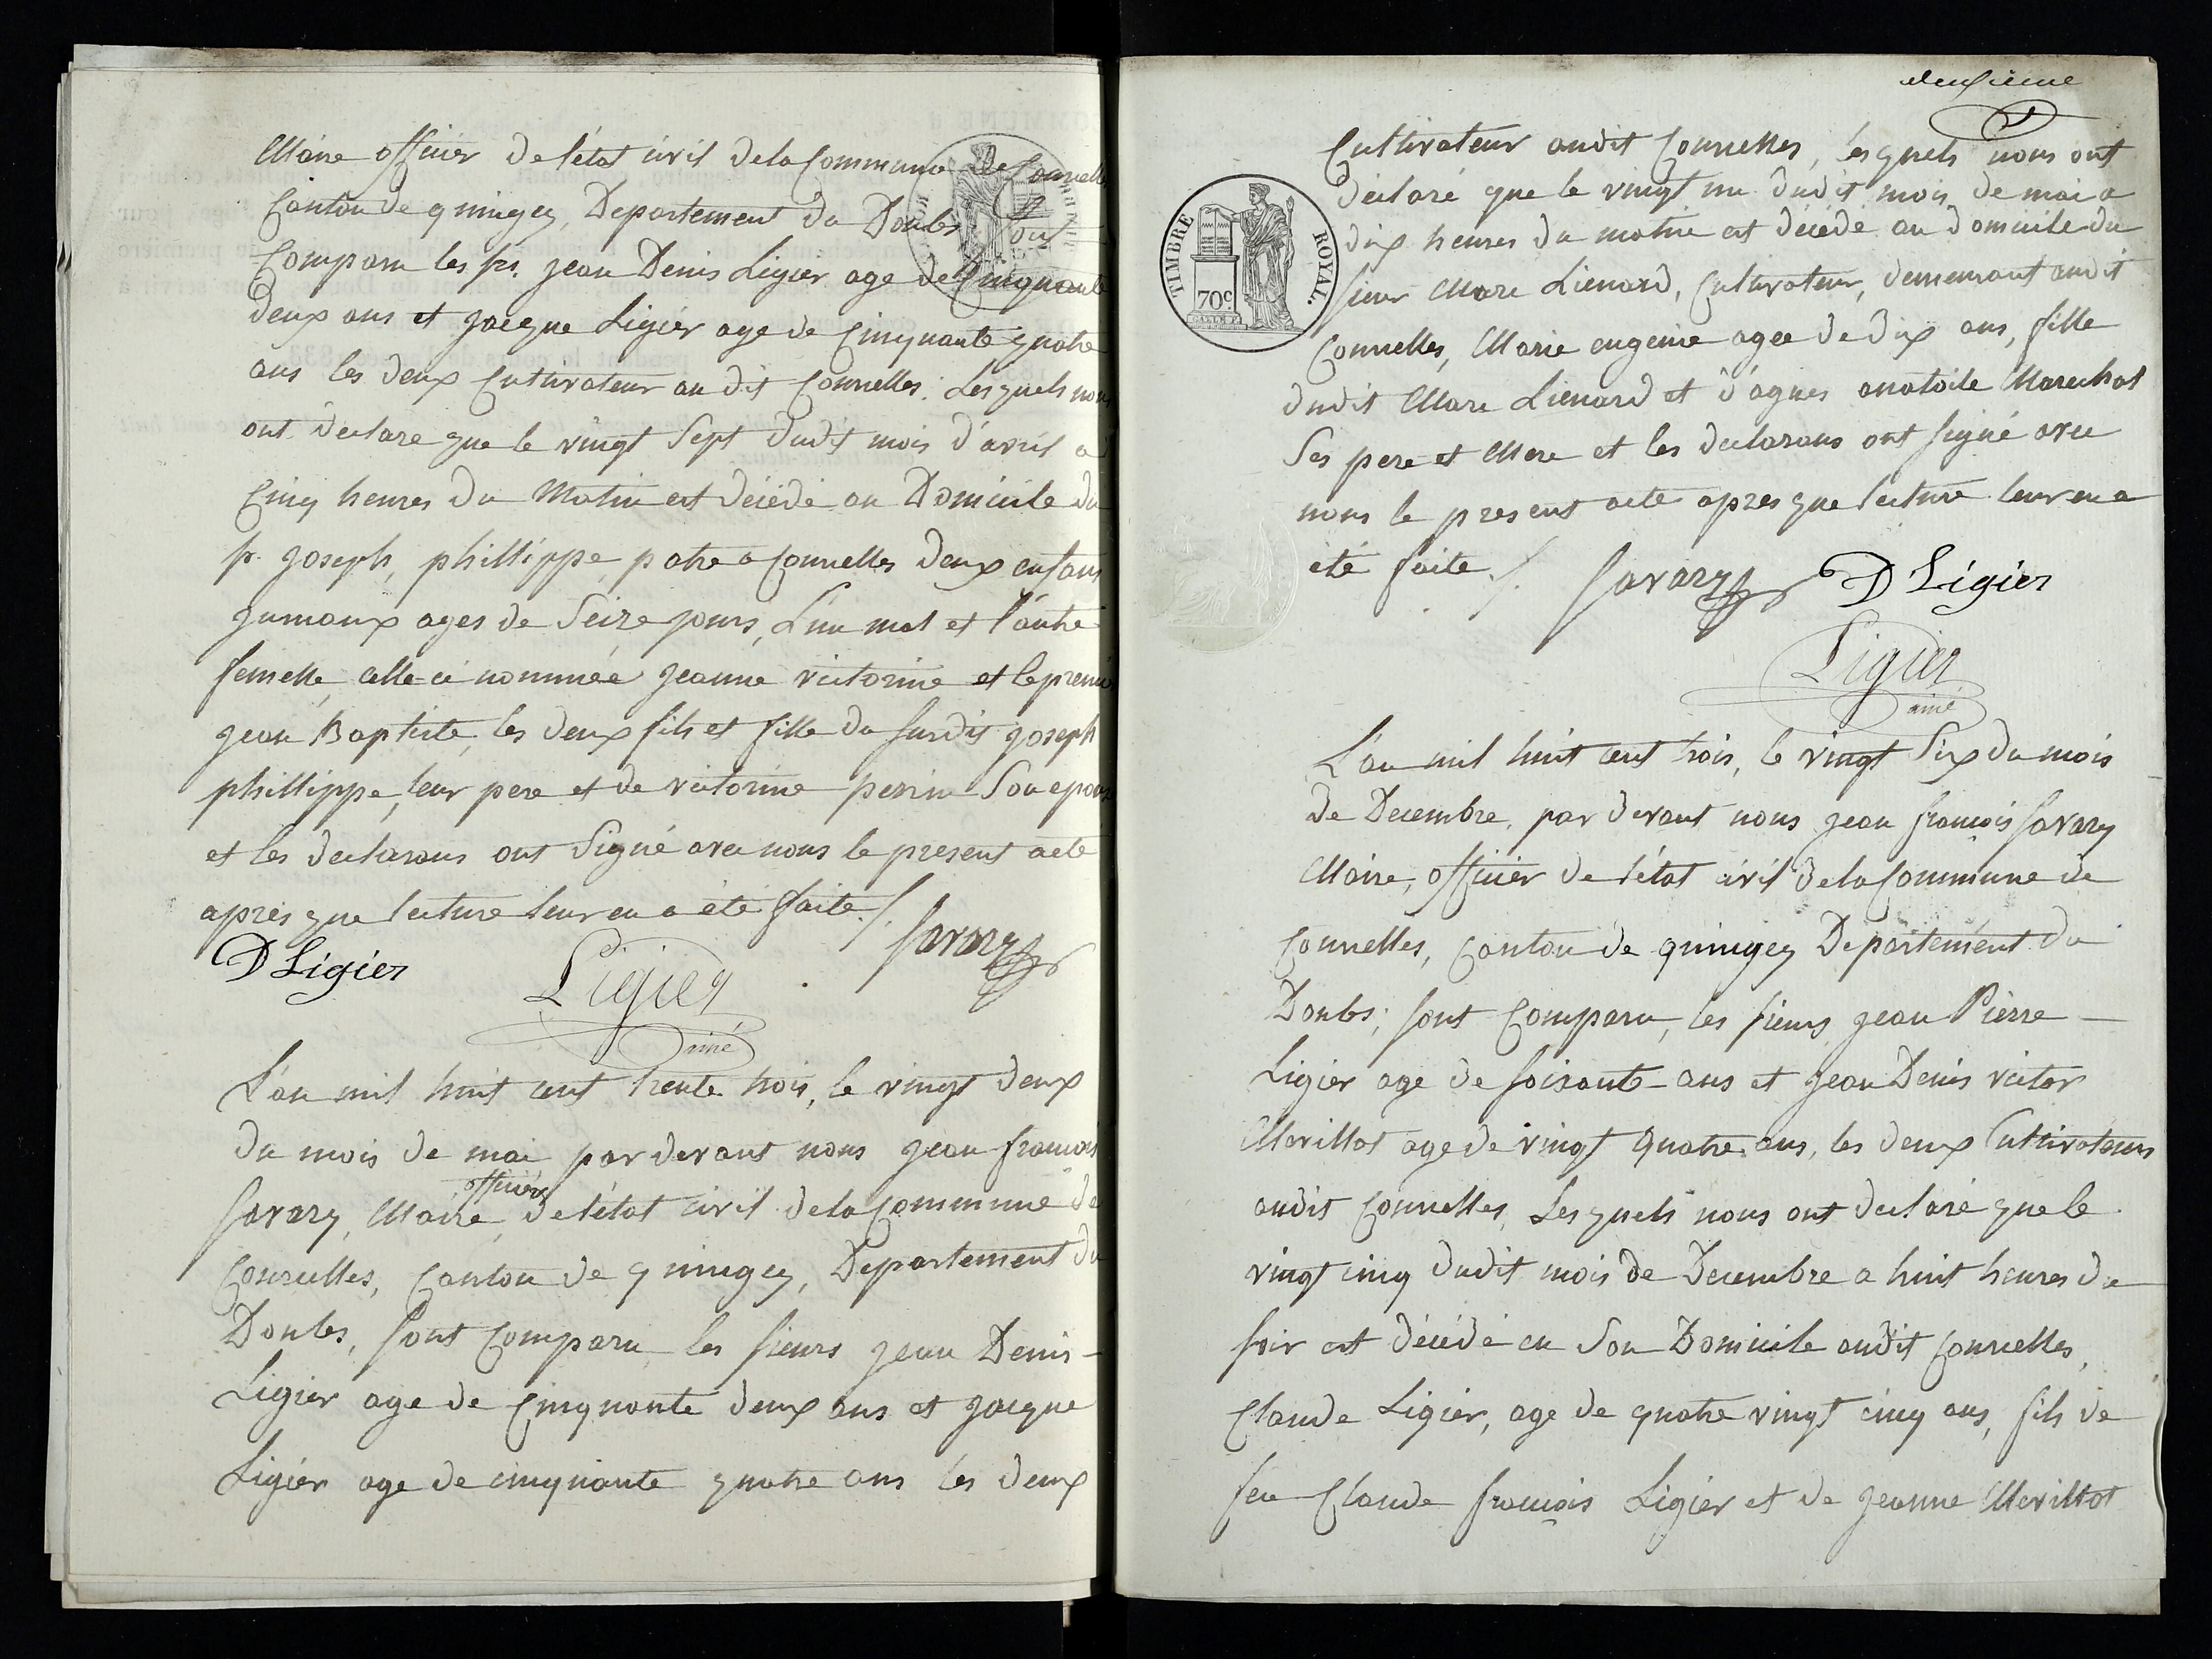 Maire officier de l'état civil de la Commune de Courcelles
Canton de quingey, Departement du Doubs
Comparu les srs. jean Denis Ligier age de Cinquante
deux ans et jacque Ligier age de Cinquante quatre
ans les deux Cultivateur au dit Courcelles. Lesquels nous
ont declare que le vingt Sept dudit mois d'avril a
Cinq heures du Matin est décédé au Domicile du
sr. joseph, phillippe, patre a Courcelles deux enfans
jumaux ages de Seize jours, L'un mal et l'autre
femelle, celle-ci nommée jeanne victorine et le premier
jean Baptiste, les deux fils et fille du susdit joseph
phillippe, leur pere et de victorine perrin Son epouse
et les declarans ont Signé avec nous le present acte
après que lecture leur en a été faite ./.
Savarzy
D Ligier
Ligier
ainé
L'an mil huit cent trente trois, le vingt deux
du mois de mai par devant nous jean francois
officier
Savarzy, Maire, de l'état civil de la Commune de
Courcelles, Canton de quingey, Departement du
Doubs, sont Comparu les sieurs jean Denis -
Ligier age de Cinquante deux ans et jacque
Ligier age de cinquante quatre ans les deux
deuxieme
Cultivateur audit Courcelles, lesquels nous ont
declaré que le vingt un dudit mois de mai a
dix heures du matin est décédé au domicile du
sieur Marc Lienard, Cultivateur, demeurant audit
Courcelles, Marie eugenie agee de dix ans, fille
dudit Marc Lienard et d'agnes anatoile Marechal
Ses pere et Mere et les declarans ont signé avec
nous le present acte apres que lecture leur en a
été faite ./. Savarzy D Ligier
Ligier
ainé
TIMBRE ROYAL.
70c
L'an mil huit cent trois, le vingt Six du mois
de Decembre, par devant nous jean francois Savarzy
Maire, officier de l'état civil de la Commune de
Courcelles, Canton de quingey Departement du
Doubs; sont Comparu, les sieurs jean Pierre -
Ligier age de soisante ans et jean Denis victor
Merillot age de vingt quatre ans, les deux Cultivateurs
audit Courcelles, Lesquels nous ont declaré que le
vingt cinq dudit mois de Decembre a huit heures du
soir est décédé en Son Domicile audit Courcelles,
Claude Ligier, age de quatre vingt cinq ans, fils de
feu Claude francois Ligier et de jeanne Merillot